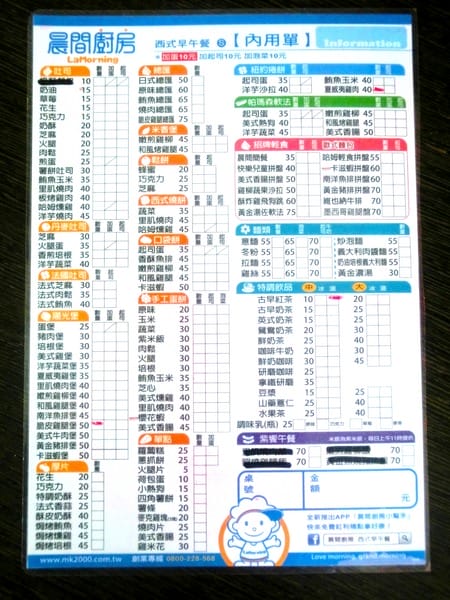 晨間廚房
LaMorning
西式早午餐 【內用單】
Information
加蛋10元 加起司10元 加泡菜10元
吐司
10
奶油 15
草莓 15
花生 15
巧克力 15
奶酥 20
芝麻 20
火腿 20
肉鬆 20
起司 20
煎蛋 25
薯餅吐司 30
鮪魚玉米 35
里肌燒肉 40
板烤雞腿 40
哈姆燻雞 45
洋芋燒肉 45
丹麥吐司
芝麻 30
火腿蛋 35
香煎培根 35
洋芋燻雞 45
法國吐司
法式芝麻 30
法式肉鬆 35
法式火腿 35
陽光堡
蛋堡 25
豬肉堡 30
培根堡 30
美式雞堡 30
洋芋蔬菜堡 35
夏威夷雞堡 35
里肌燒肉堡 40
嫩煎雞柳堡 40
和風雞腿堡 40
南洋魚排堡 40
脆皮雞腿堡 50
美式牛肉堡 50
黃金豬排堡 50
卡滋蝦堡 50
厚片
花生 20
巧克力 20
特調奶酥 25
蒜香奶油 25
酥皮奶酥 40
焗烤鮪魚 45
焗烤燻雞 45
焗烤燒肉 45
總匯
日式總匯 50
原味總匯 60
鮪魚總匯 65
燒肉總匯 65
脆皮雞腿總匯 75
米香堡
嫩煎雞柳 40
和風雞腿 40
鬆餅
蜂蜜 20
巧克力 25
芝麻 25
西式燒餅
蔬菜 35
里肌燒肉 40
嫩煎雞柳 40
口袋餅
起司蛋 35
香酥魚排 45
嫩煎雞柳 45
和風雞腿 45
卡滋蝦 50
手工蛋餅
原味 20
玉米 25
蔬菜 30
紫米飯 30
肉鬆 30
火腿 30
培根 30
鮪魚玉米 35
芝心 35
美式燻雞 40
里肌燒肉 40
櫻花蝦 40
美式香腸 45
單點
蘿蔔糕 25
蔥抓餅 25
火腿片 5
荷包蛋 10
小熱狗 15
四角薯餅 15
薯條 20
麥克雞塊 20
燒肉片 25
美式香腸 25
雞米花 30
紐約捲餅
起司蛋 35 鮪魚玉米 40
洋芋沙拉 40 夏威夷雞肉 40
帕瑪森軟法
起司蛋 35 嫩煎雞柳 40
美式熱狗 40 和風雞腿 40
洋芋蔬菜 45 美式香腸 50
招牌輕食 歐式麵包
晨間簡餐 35 哈姆輕食拼盤 55
快樂兒童拼盤 40 卡滋蝦拼盤 55
美式香腸拼盤 50 南洋魚排拼盤 55
雞柳蔬果沙拉 50 黃金豬排拼盤 70
酥炸雞飛狗跳 60 維也納牛排 70
黃金湯佐軟法 75 墨西哥雞腿盤 70
麵類
蔥麵 55 65 70 炒泡麵 55
冬粉 55 65 70 義大利肉醬麵 55
粄條 55 65 70 奶油培根義大利麵 55
雞絲 55 65 70 黃金濃湯 30
特調飲品 中 冰 溫 大 冰 溫
古早紅茶 10 20
古早奶茶 15 25
英式奶茶 15 25
鴛鴦奶茶 20 30
鮮奶茶 25 40
咖啡牛奶 20 30
鮮奶咖啡 30 45
研磨咖啡 25
拿鐵研磨 35
豆漿 15 25
山藥薏仁 25 40
水果茶 25 40
調味乳(瓶) 25
紫饗午餐
70 70
桌號 金額 元
全新推出APP「晨間廚房小幫手」
快來免費紅利積點拿好康！
晨間廚房 西式早午餐
Love morning, grand morning
www.mk2000.com.tw 創業專線 0800-228-568